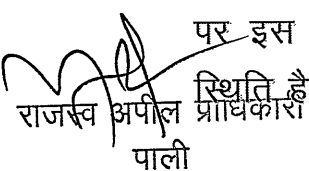 पर इस
स्थिति है
राजस्व अपील प्राधिकारी
पाली